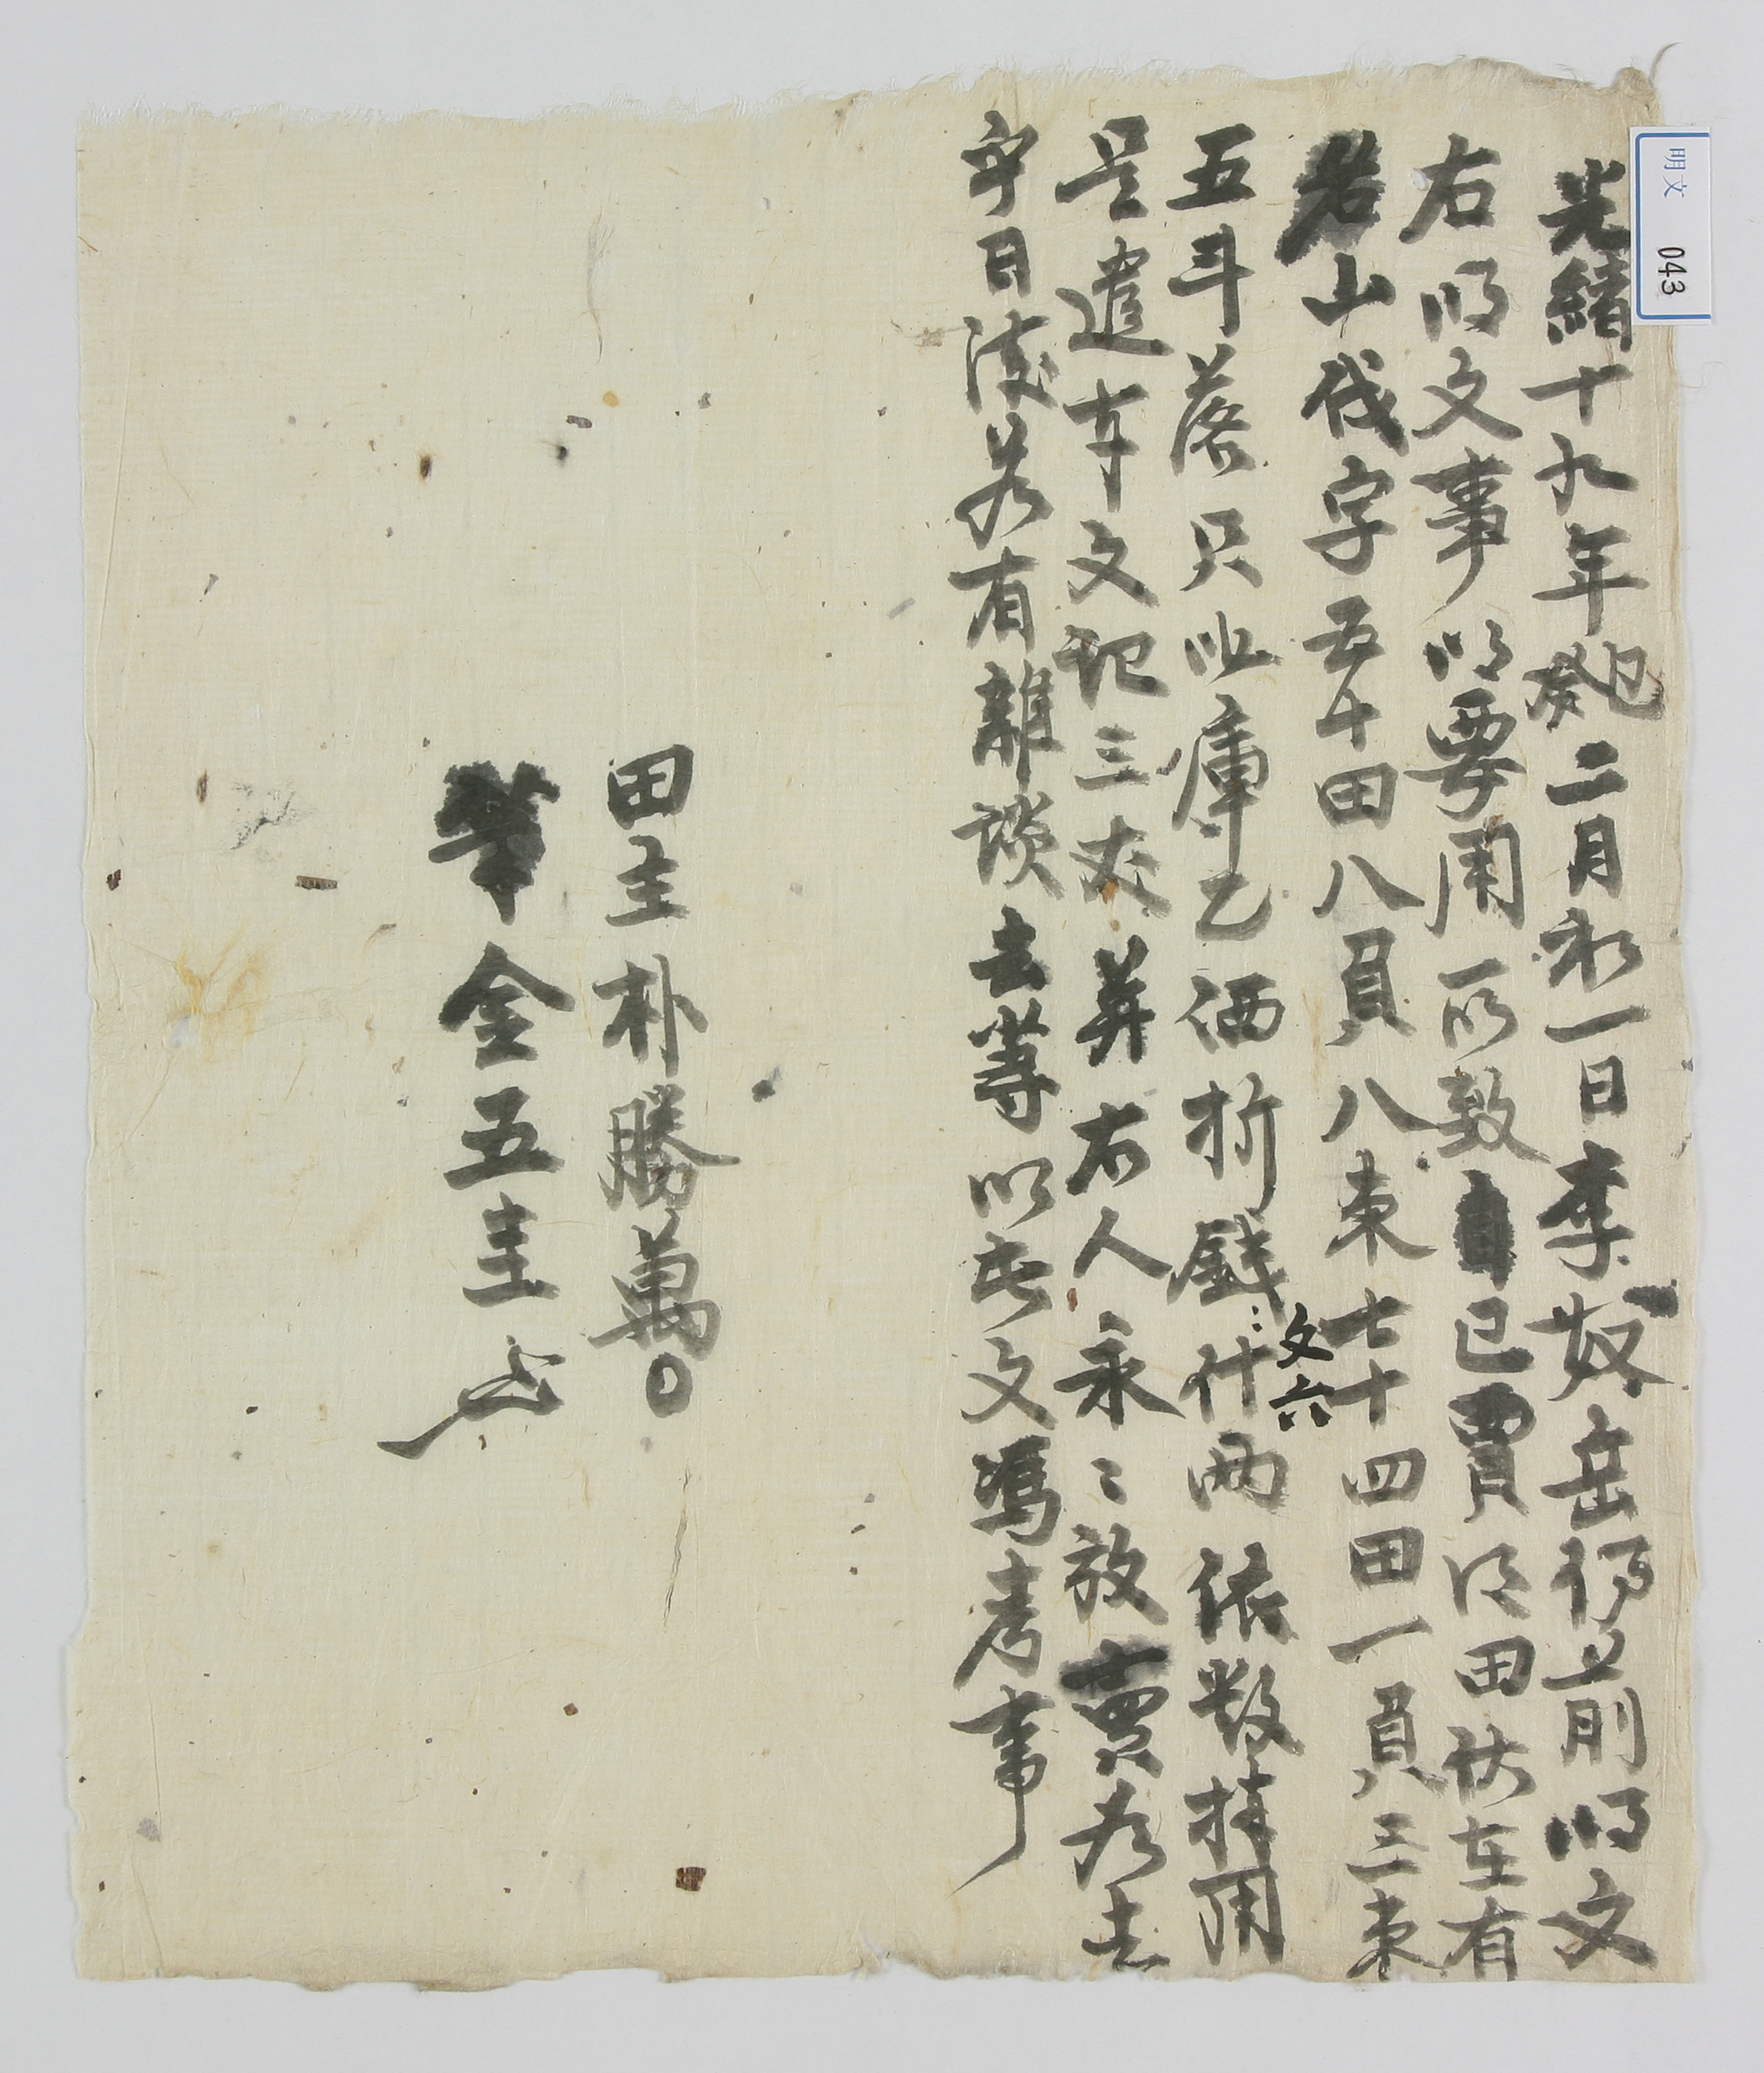 光緒十九年癸巳二月初一日李奴岳得前明文
右明文事以要用所致自己買得田伏在有
岩山伐字五十田八負八束七十四田一負三束
五斗落只㐣庫乙価折錢文六什両依数捧用
是遣本文記三丈并右人永〻放賣爲去
乎日後若有雜談去等以此文馮考事
田主朴勝萬〇
筆金五圭
明文 043